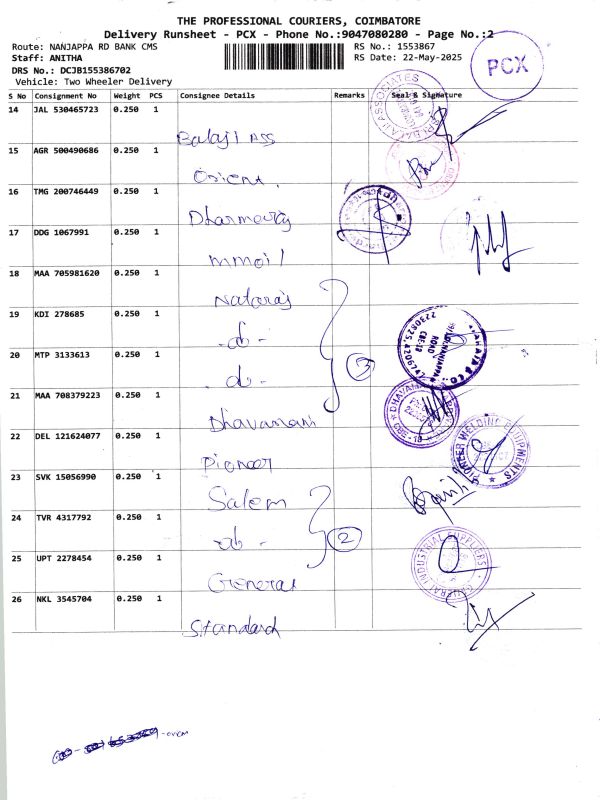 THE PROFESSIONAL COURIERS, COIMBATORE
Delivery Runsheet - PCX - Phone No.:9047080280 - Page No.:2
Route: NANJAPPA RD BANK CMS
Staff: ANITHA
DRS No.: DCJB155386702
Vehicle: Two Wheeler Delivery
RS No.: 1553867
RS Date: 22-May-2025
PCX
S No Consignment No Weight PCS Consignee Details Remarks Seal & Signature
14 JAL 530465723 0.250 1
Balaji Ass
15 AGR 500490686 0.250 1
Orient.
16 TMG 200746449 0.250 1
Dharmaraj
17 DDG 1067991 0.250 1
mmoil
18 MAA 705981620 0.250 1
Nataraj
19 KDI 278685 0.250 1
-do-
20 MTP 3133613 0.250 1
-do-
3
21 MAA 708379223 0.250 1
Dhavamani
22 DEL 121624077 0.250 1
Pioneer
PIONEER WELDING EQUIPMENTS
23 SVK 15056990 0.250 1
Salem
24 TVR 4317792 0.250 1
-do-
2
25 UPT 2278454 0.250 1
General
GENERAL INDUSTRIAL SUPPLIERS
26 NKL 3545704 0.250 1
Standard